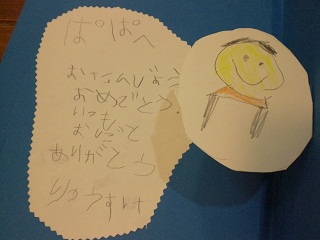 ぱぱへ
おたんじょう
おめでとう
いつも
おしごと
ありがとう
りゅうすけ